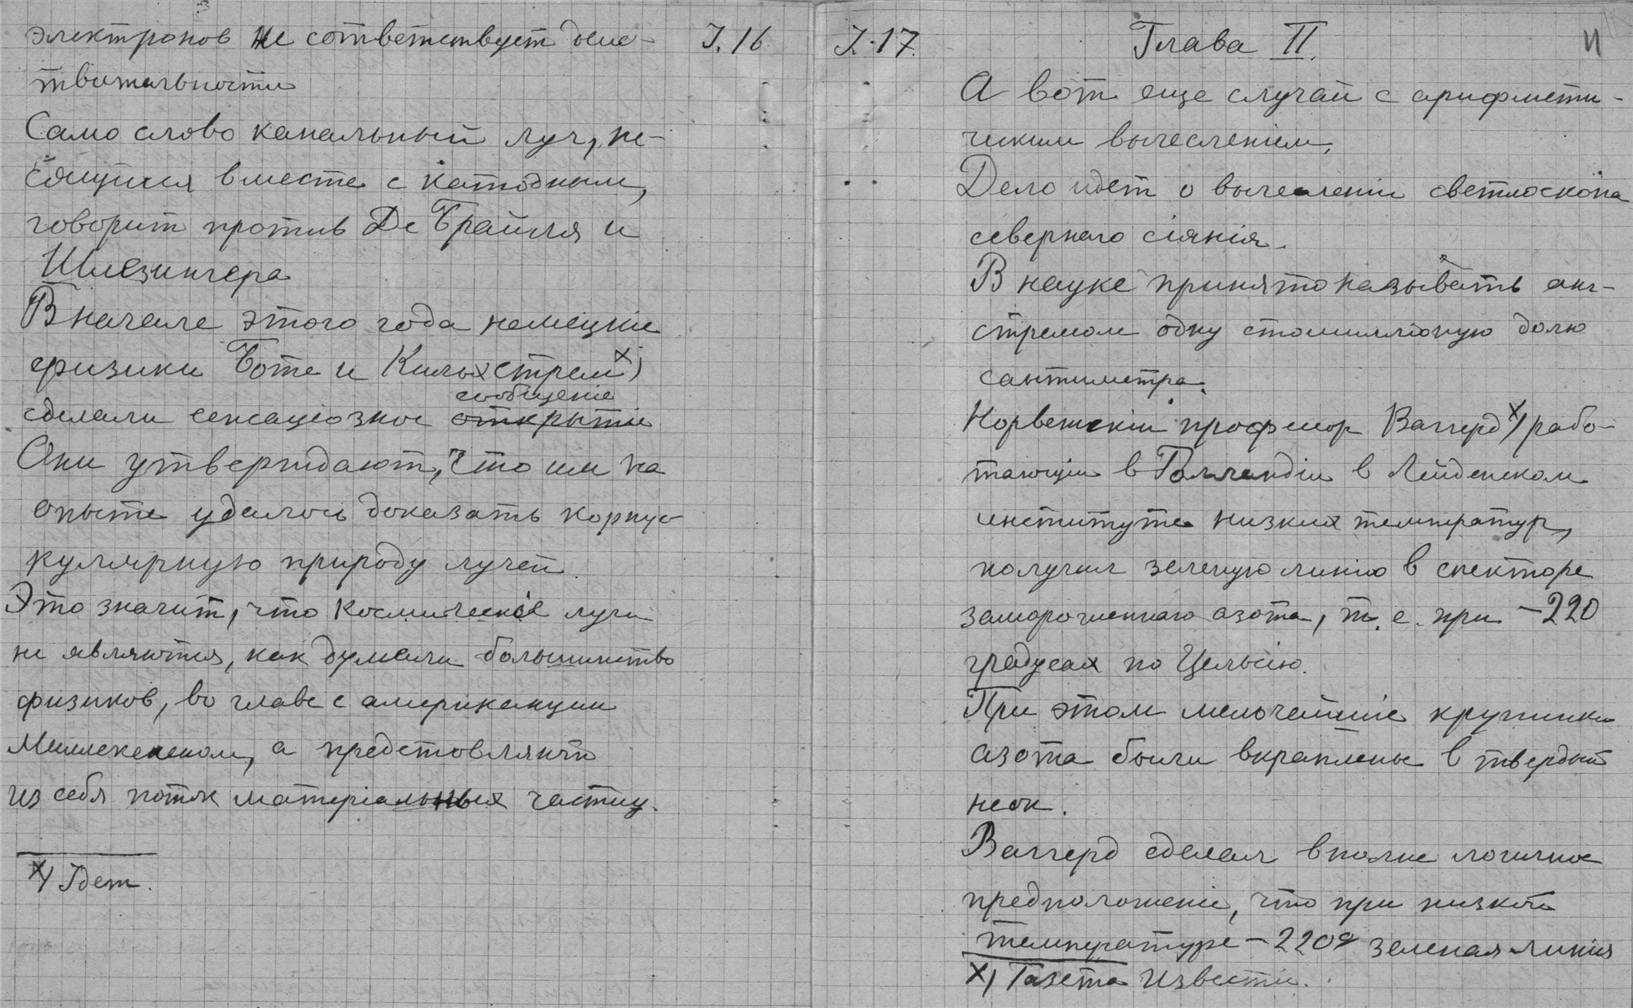 электронов не соответствует дей-
I.16
твительности
Само слово канальный луч, не-
сущийся вместе с катодным,
говорит против Де Брайля и
Шлезингера
В начале этого года немецкие
физики Боте и Кильхстрем х)
сообщение
сделали сенсационное открытие
Они утверждают, что им на
опыте удалось доказать корпус-
кулярную природу лучей
Это значит, что космическіе лучи
не являются, как думали большинство
физиков, во главе с американцем
Милликеном, а представляют
из себя поток матеріальных частиц.
х) Ibem.
I.17.
Глава II.
А вот еще случай с арифмети-
ческим вычесленіем.
Дело идет о вычесленіи светлоскопа
северного сіянія.
В науке принято называть анг-
стремом одну стомилліоную долю
сантиметра.
Норвежскій профессор Ваггерд х) рабо-
тающій в Голландіи в Лейденском
институте низких температур,
получил зеленую линію в спекторе
замороженнаго азота, т. е. при -220
градусах по Цельсію.
При этом мельчайшіе крупинки
азота были вкраплены в твердый
неон.
Ваггерд сделал вполне логичное
предположеніе, что при низкой
температуре -220° зеленая линія
х) Газета Известіи.